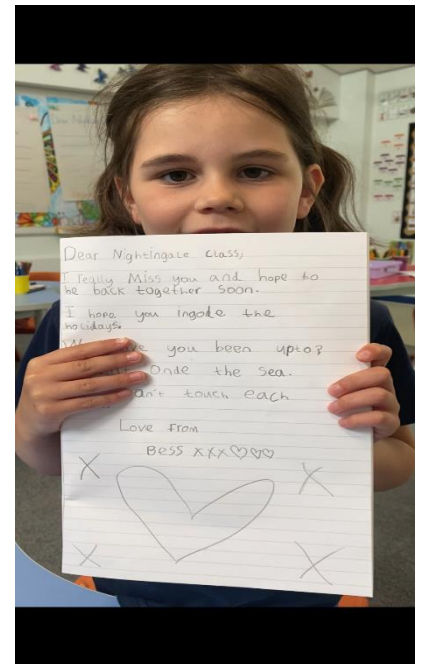 Dear Nightingale Class,
I really Miss you and hope to
he back together soon.
I hope you ingode the
holidays.
you been upto?
Onde the sea.
touch each
Love from
Bess xxx♡♡♡
X X
X X